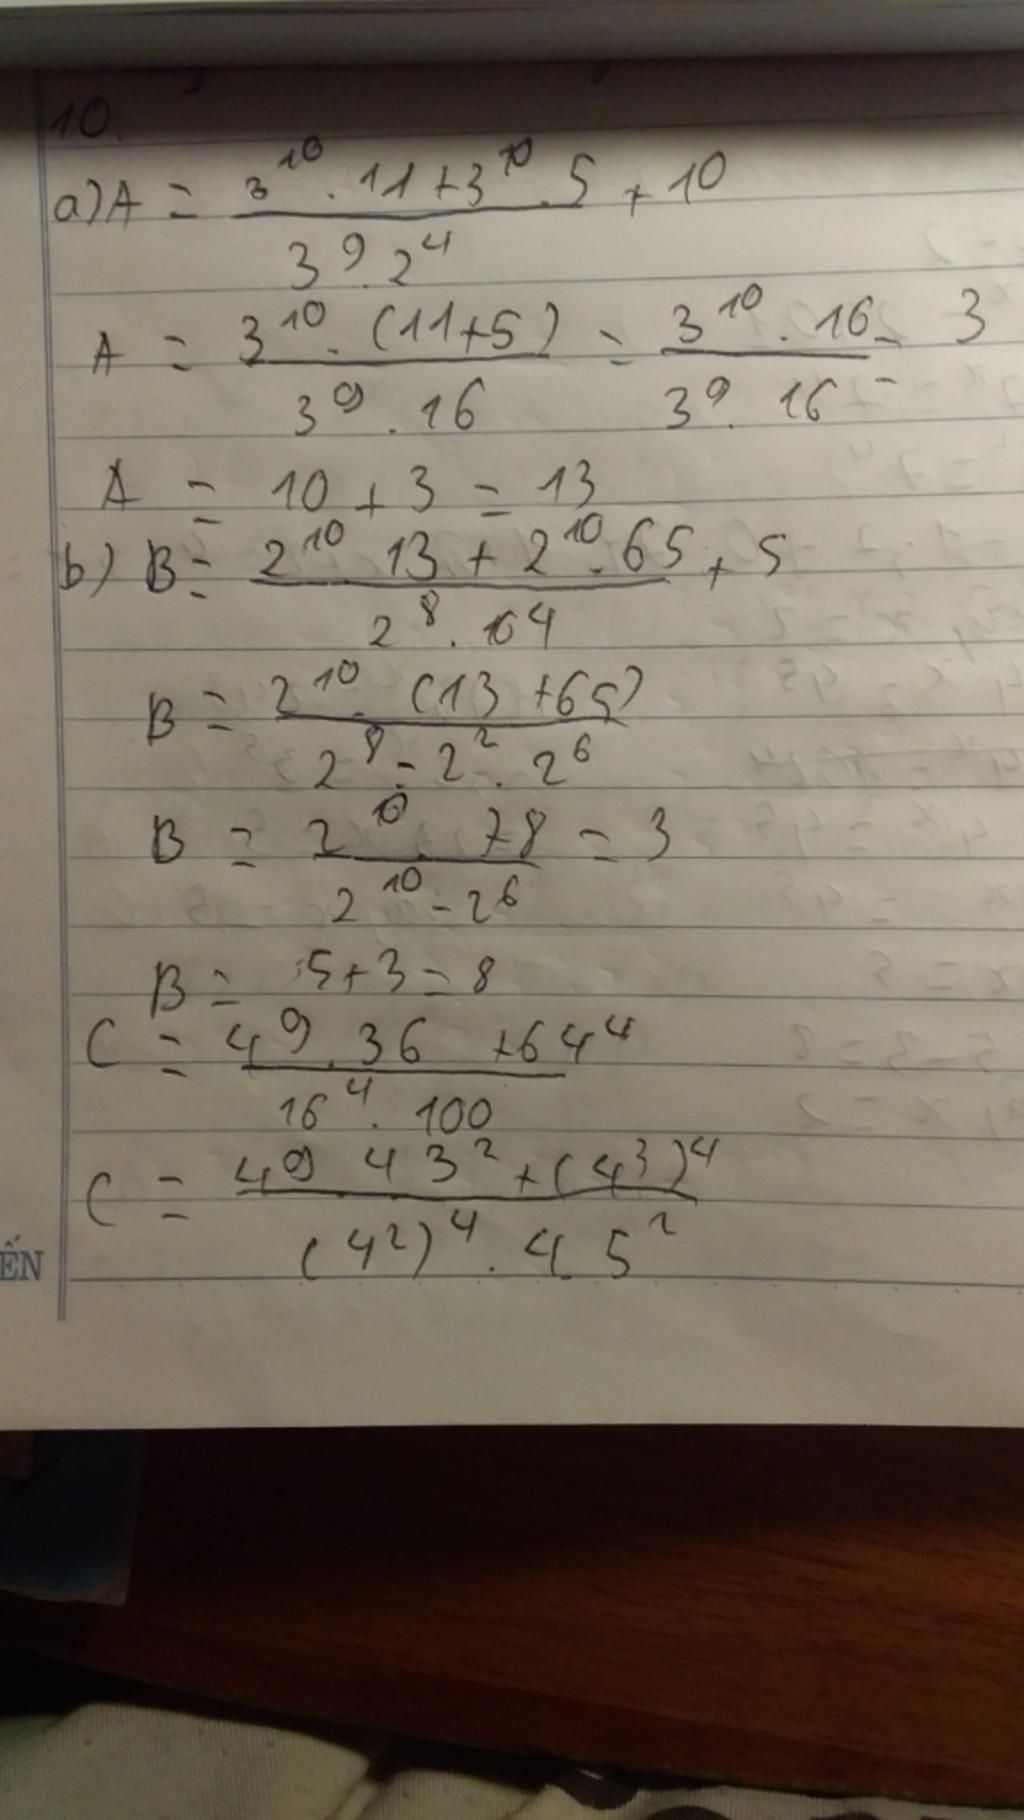 10.
a) A = (3^10 . 11 + 3^10 . 5) / (3^9 . 2^4) + 10
A = (3^10 . (11+5)) / (3^9 . 16) = (3^10 . 16) / (3^9 . 16) = 3
A = 10 + 3 = 13
b) B = (2^10 13 + 2^10 . 65) / (2^8 . 104) + 5
B = (2^10 . (13 + 65)) / (2^8 - 2^2 . 2^6)
B = (2^10 . 78) / (2^10 - 2^6) = 3
B = 5 + 3 = 8
C = (4^9 . 36 + 64^4) / (16^4 . 100)
C = (4^9 4 3^2 + (4^3)^4) / ((4^2)^4 . 4 5^2)
ẾN